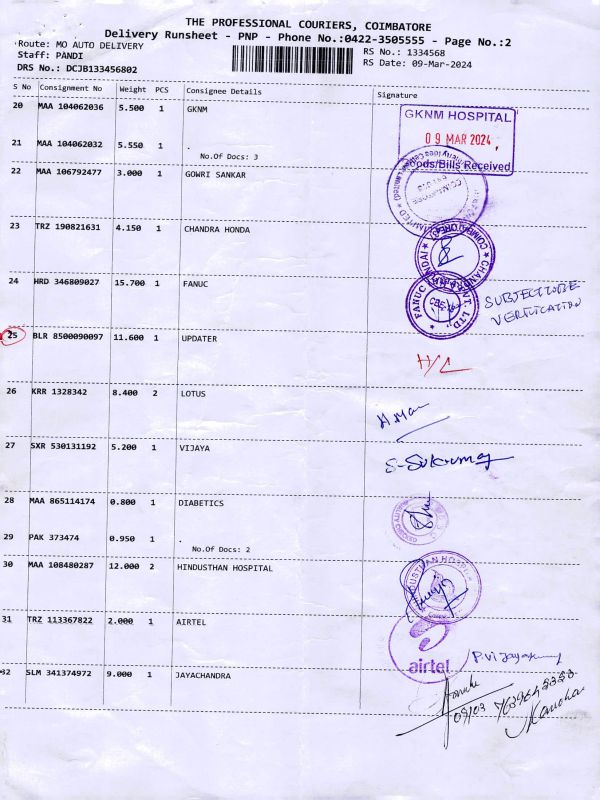 THE PROFESSIONAL COURIERS, COIMBATORE
Delivery Runsheet - PNP - Phone No.:0422-3505555 - Page No.:2
Route: MO AUTO DELIVERY
RS No.: 1334568
Staff: PANDI
RS Date: 09-Mar-2024
DRS No.: DCJB133456802
S No Consignment No Weight PCS Consignee Details Signature
20 MAA 104062036 5.500 1 GKNM
GKNM HOSPITAL
09 MAR 2024
Goods/Bills Received
21 MAA 104062032 5.550 1 .
No.Of Docs: 3
22 MAA 106792477 3.000 1 GOWRI SANKAR
23 TRZ 190821631 4.150 1 CHANDRA HONDA
24 HRD 346809027 15.700 1 FANUC
FANUC
SUBJECT TO
VERIFICATION
25 BLR 8500090097 11.600 1 UPDATER
H/L
26 KRR 1328342 8.400 2 LOTUS
27 SXR 530131192 5.200 1 VIJAYA
S-Sukumar
28 MAA 865114174 0.800 1 DIABETICS
29 PAK 373474 0.950 1 .
No.Of Docs: 2
30 MAA 108480287 12.000 2 HINDUSTHAN HOSPITAL
31 TRZ 113367822 2.000 1 AIRTEL
airtel
32 SLM 341374972 9.000 1 JAYACHANDRA
09/03